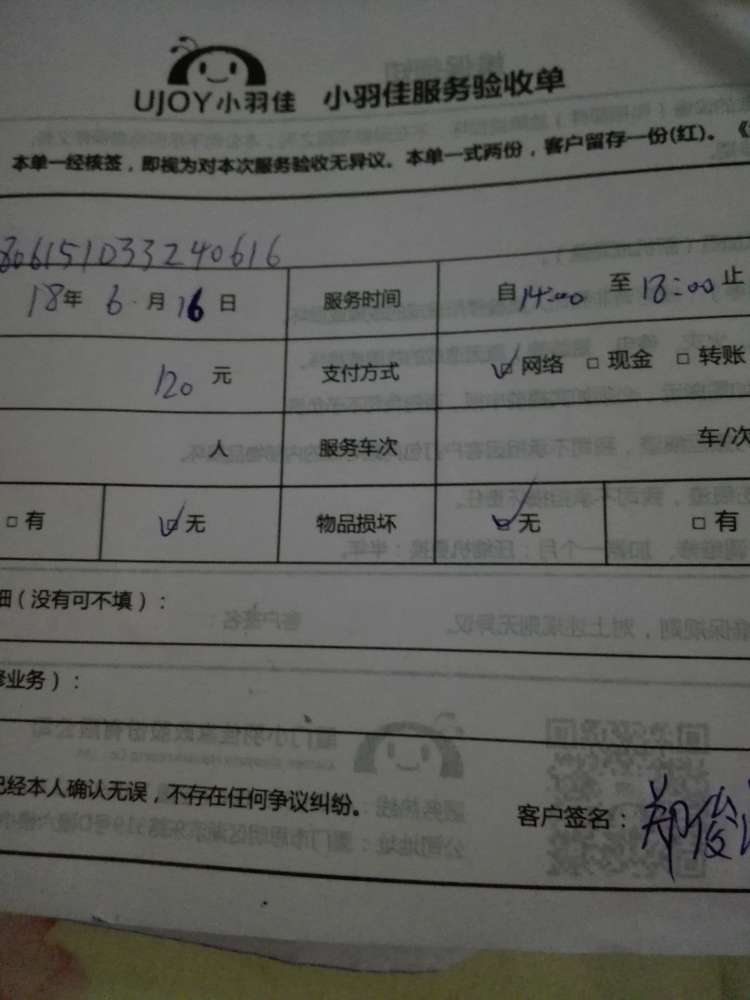 UJOY小羽佳 小羽佳服务验收单
本单一经核签，即视为对本次服务验收无异议。本单一式两份，客户留存一份(红)。《
8061510332​40616
18年 6 月 16 日 服务时间 自14:00 至 18:00 止
120 元 支付方式 网络 □ 现金 □ 转账
人 服务车次 车/次
□ 有 无 物品损坏 无 □ 有
细（没有可不填）：
修业务）：
已经本人确认无误，不存在任何争议纠纷。
客户签名：郑俊